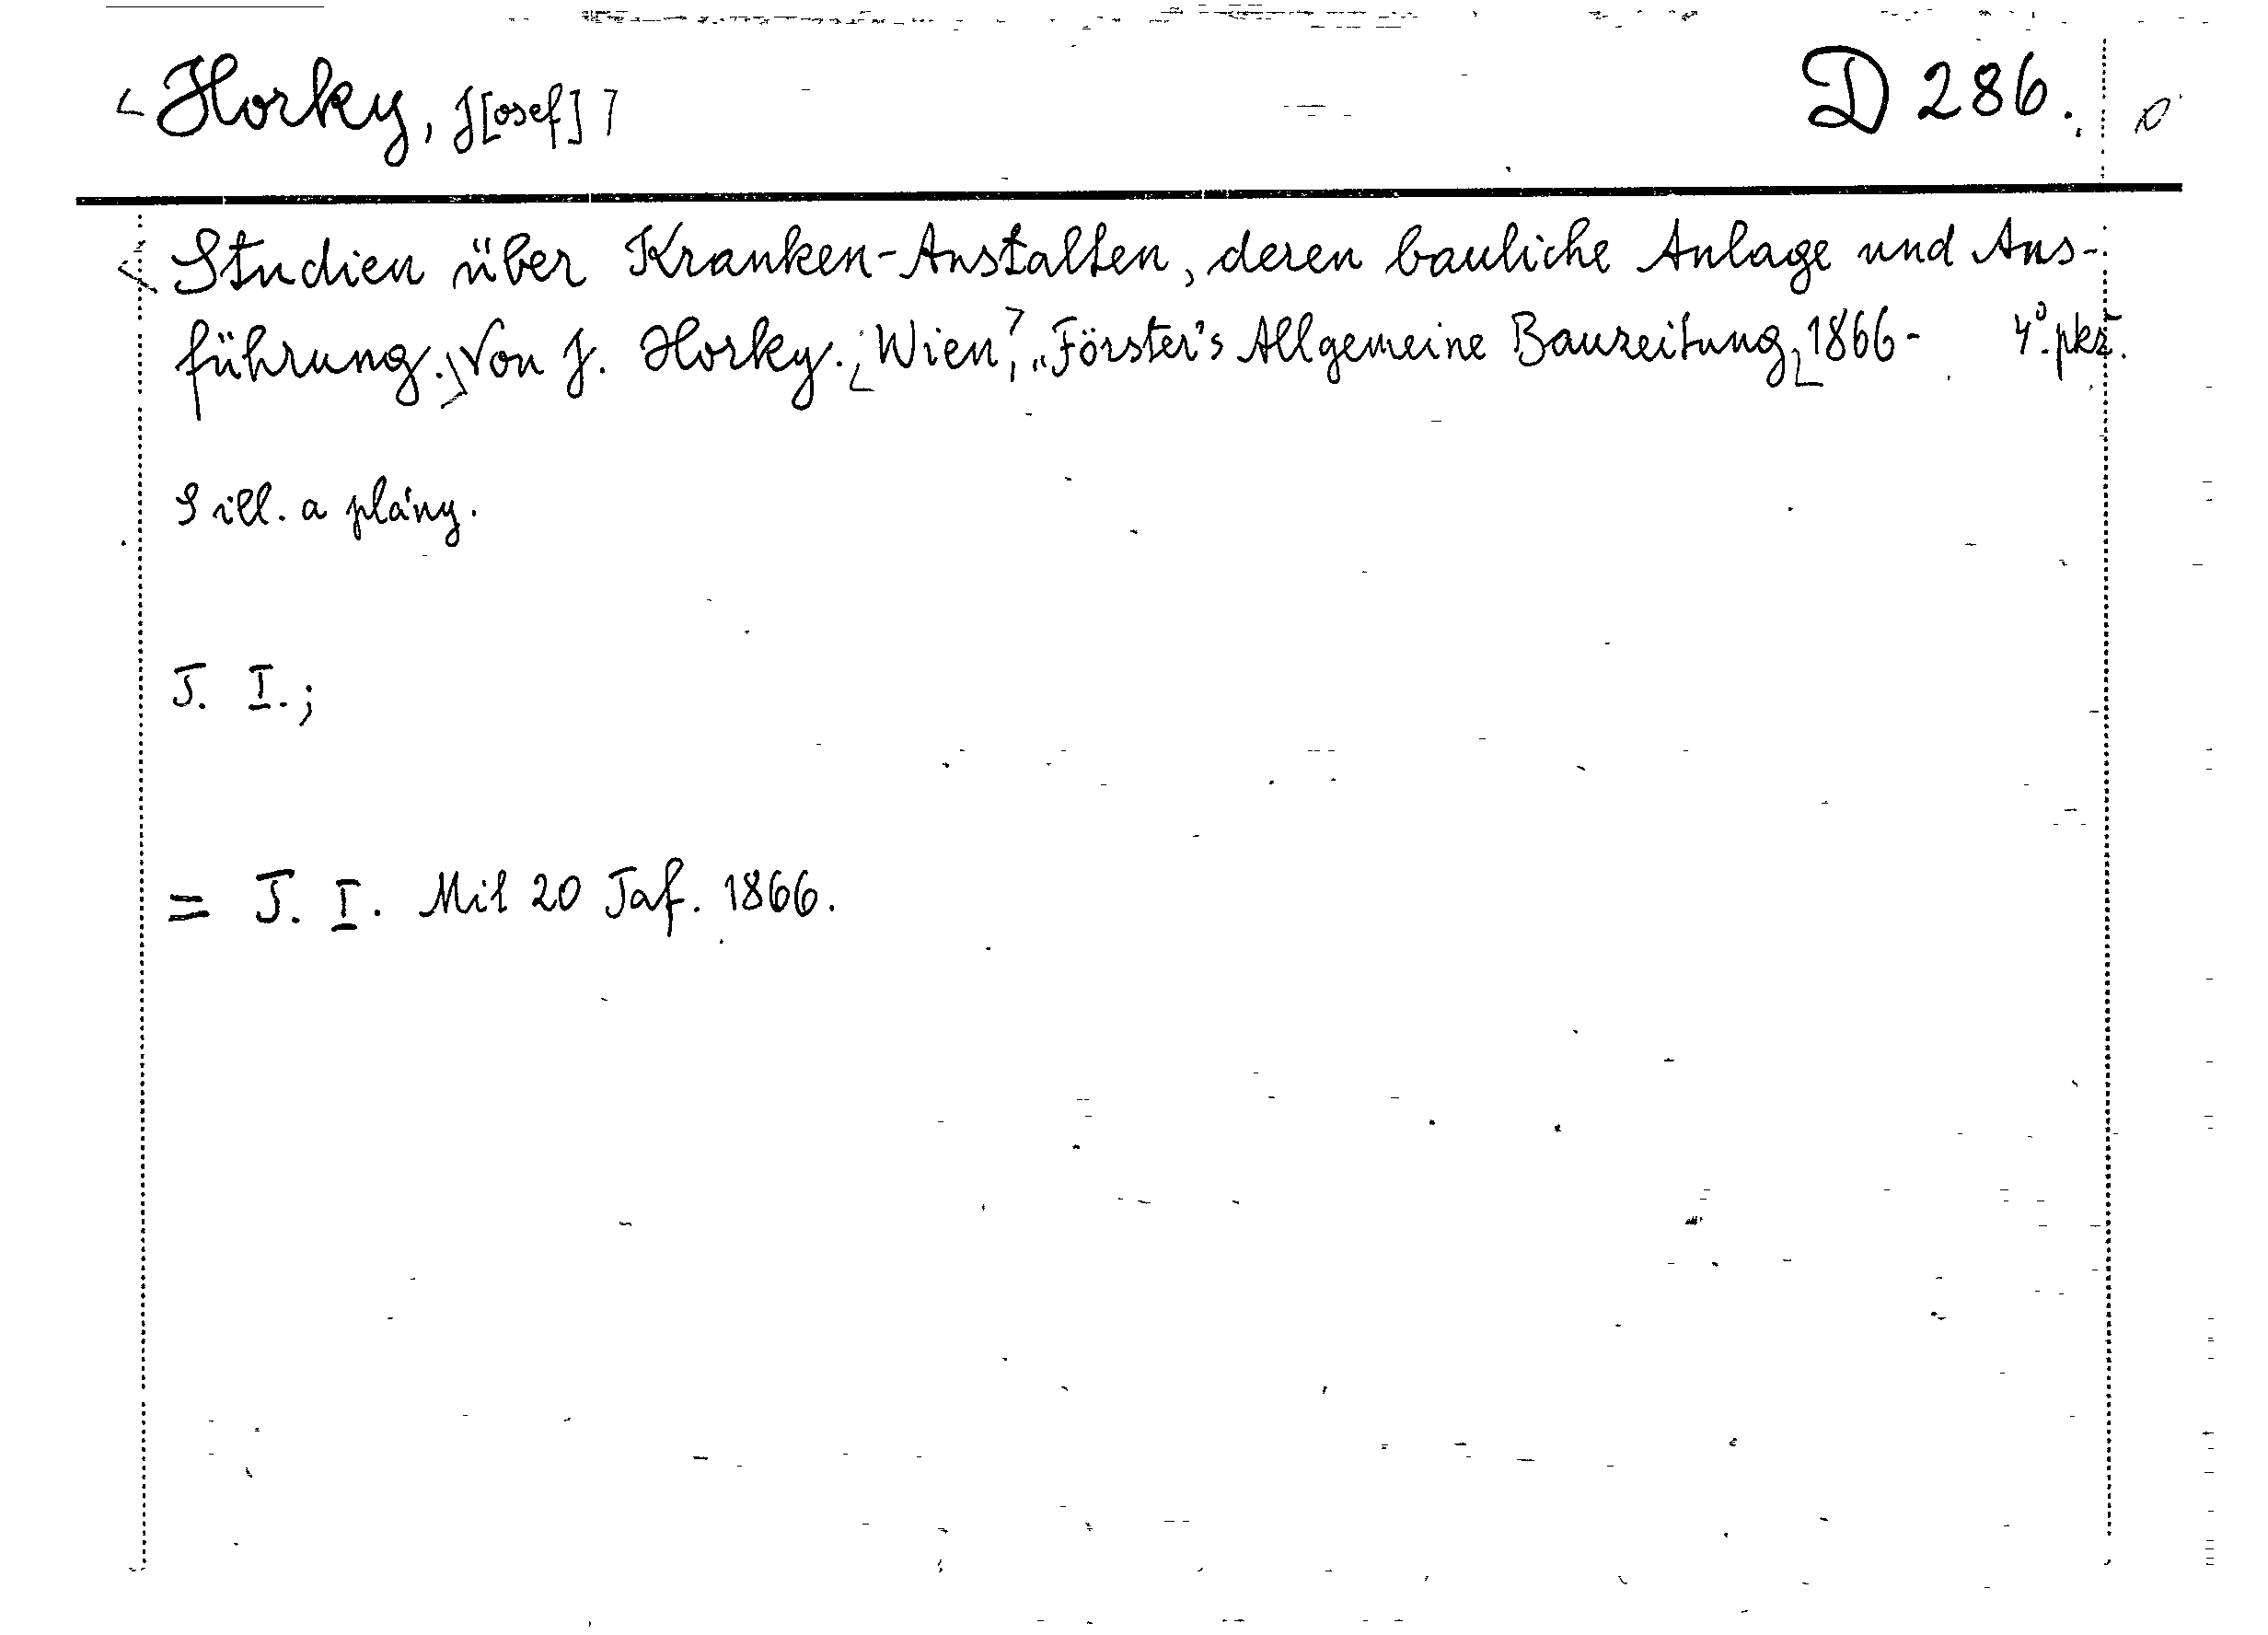 Horky, J[osef] D 286.
Studien über Kranken-Anstalten, deren bauliche Anlage und Aus-
führung. Von J. Horky. Wien, „Förster's Allgemeine Bauzeitung, 1866- 4° pkž.
S ill. a plány.
T. I.;
= T. I. Mit 20 Taf. 1866.